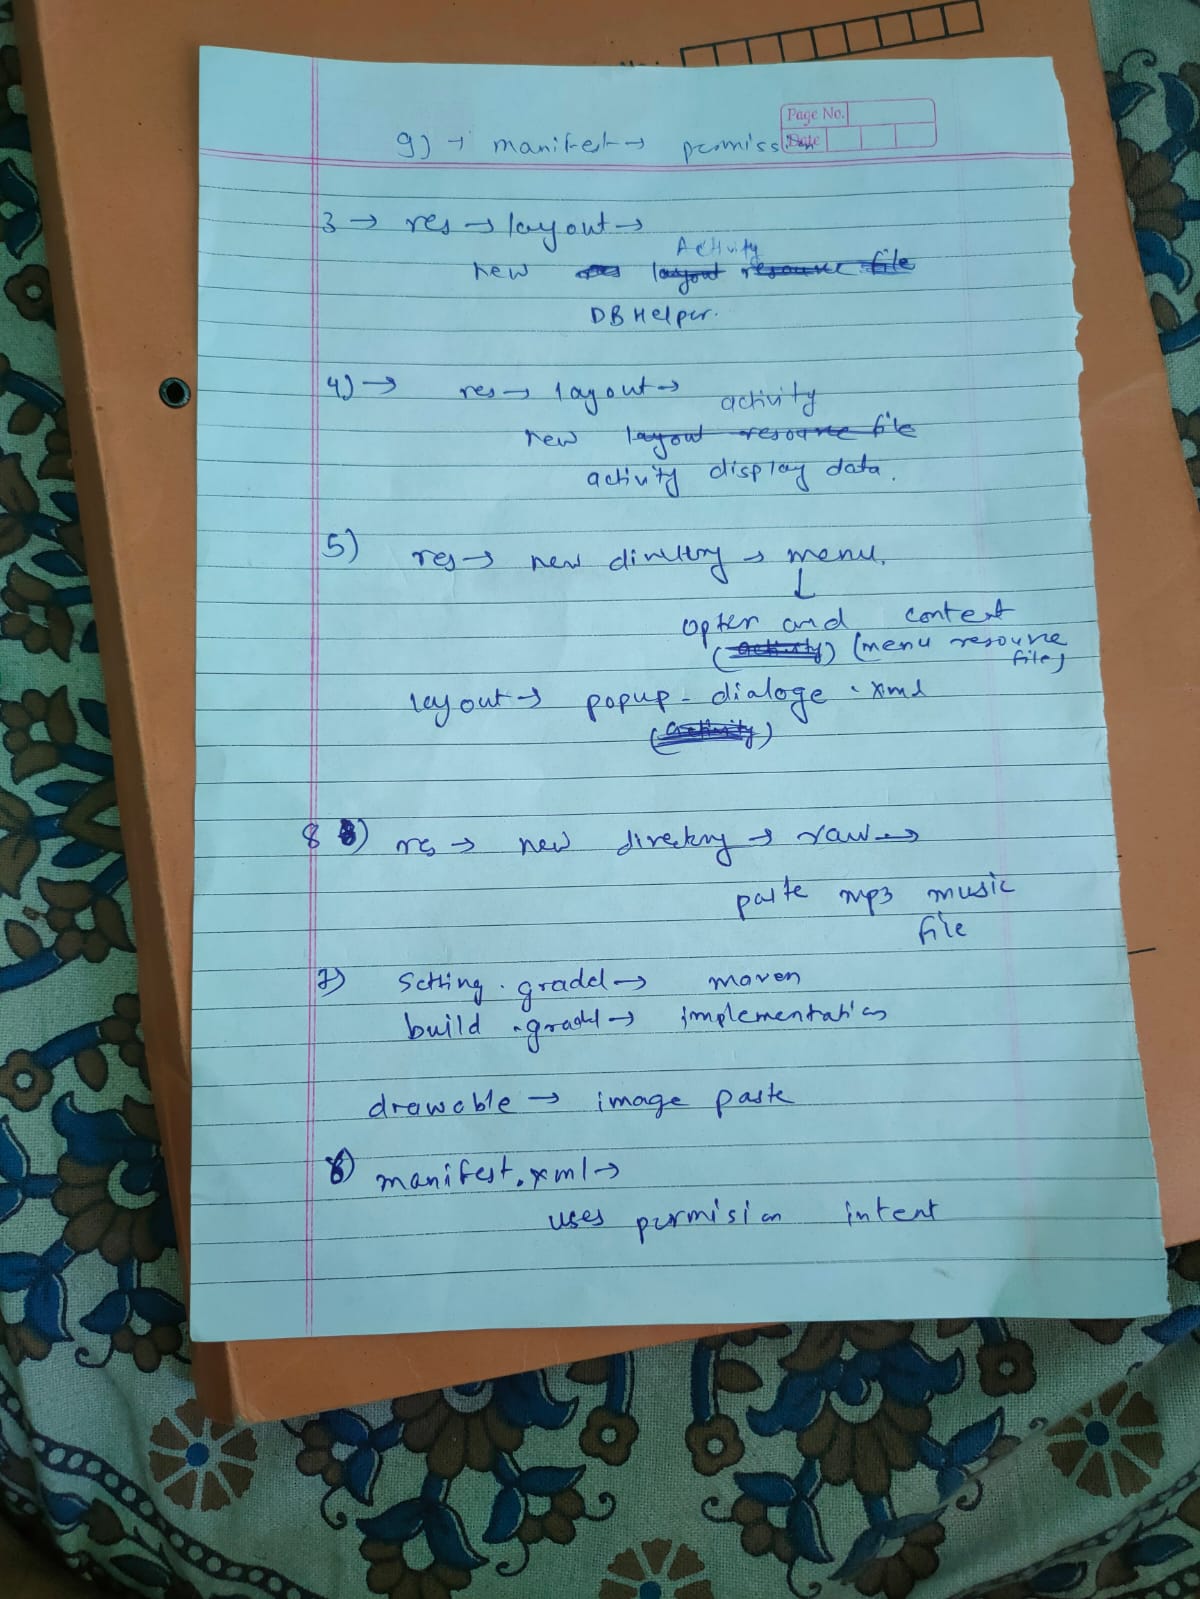 Page No.
Date
9) → manifest → permission
3 → res → layout →
Activity
new layout resource file
DB Helper.
4) → res → layout →
activity
new layout resource file
activity display data.
5) res → new directory → menu.
↓
option and context
(activity) (menu resource
file)
layout → popup - dialoge . xml
(activity)
8 8) res → new directory → raw →
paste mp3 music
file
7) Setting . gradel → maven
build .gradel → implementation
drawable → image paste
6) manifest.xml →
uses permision intent